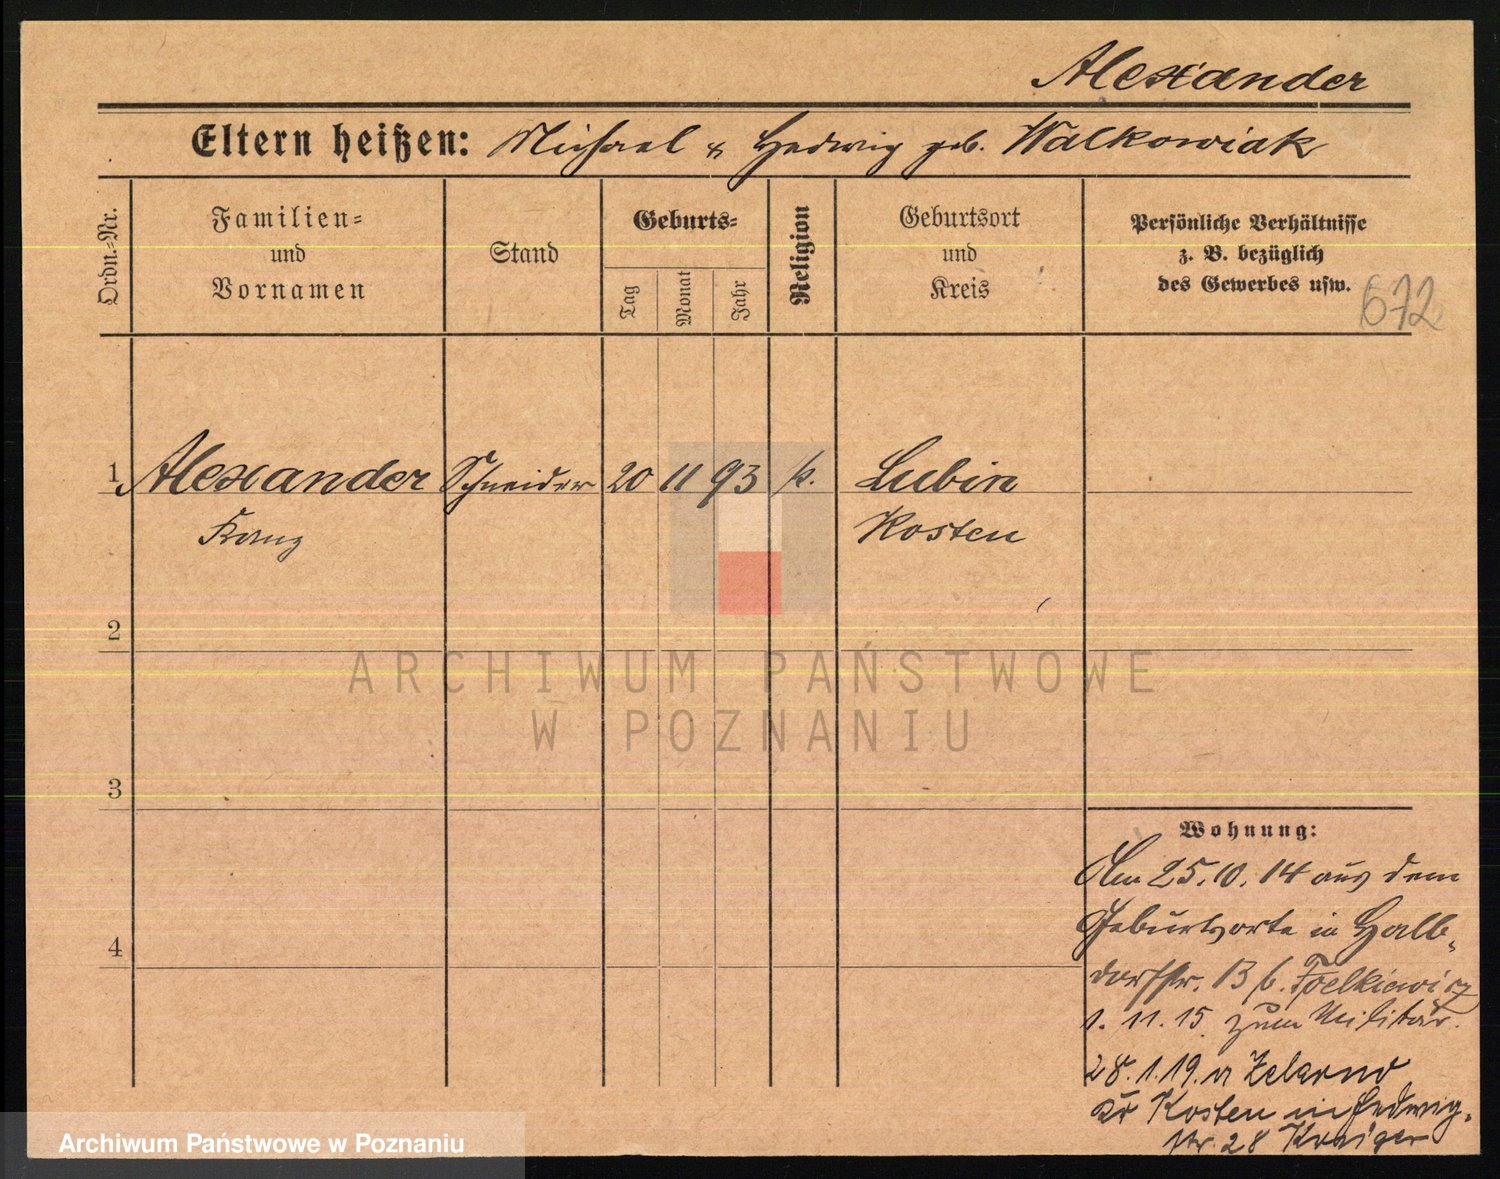 Alexander
Eltern heißen: Michael & Hedwig geb. Walkowiak
Ordn.=Nr.
Familien=
und
Vornamen
Stand
Geburts=
Tag
Monat
Jahr
Religion
Geburtsort
und
Kreis
Persönliche Verhältnisse
z. B. bezüglich
des Gewerbes usw.
672
1 Alexander Schneider 20 11 93 k. Lubin
Franz Kosten
2
3
4
Wohnung:
Am 25.10.14 aus dem
Geburtsorte in Halb-
dorfstr. 13 b.
1.11.15 zum Militär.
28.1.19. v Zelazno
Kr Kosten in Hedwig-
str. 28
ARCHIWUM PAŃSTWOWE
W POZNANIU
Archiwum Państwowe w Poznaniu